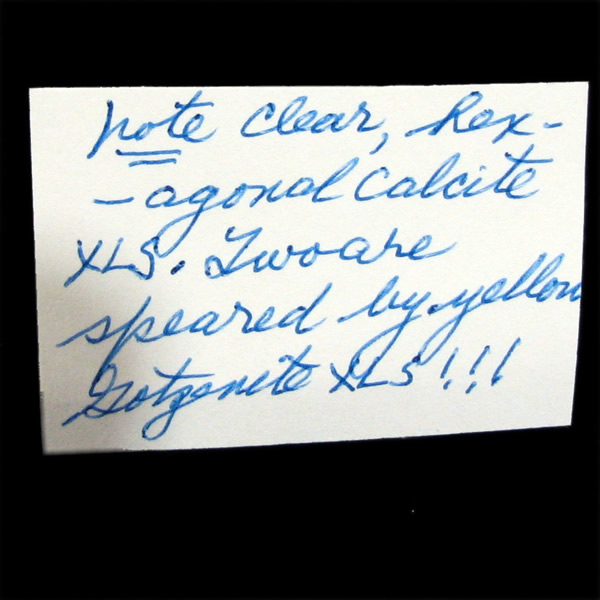 note clear, hex-
-agonal calcite
XLS. Two are
speared by yellow
Gotzenite XLS!!!